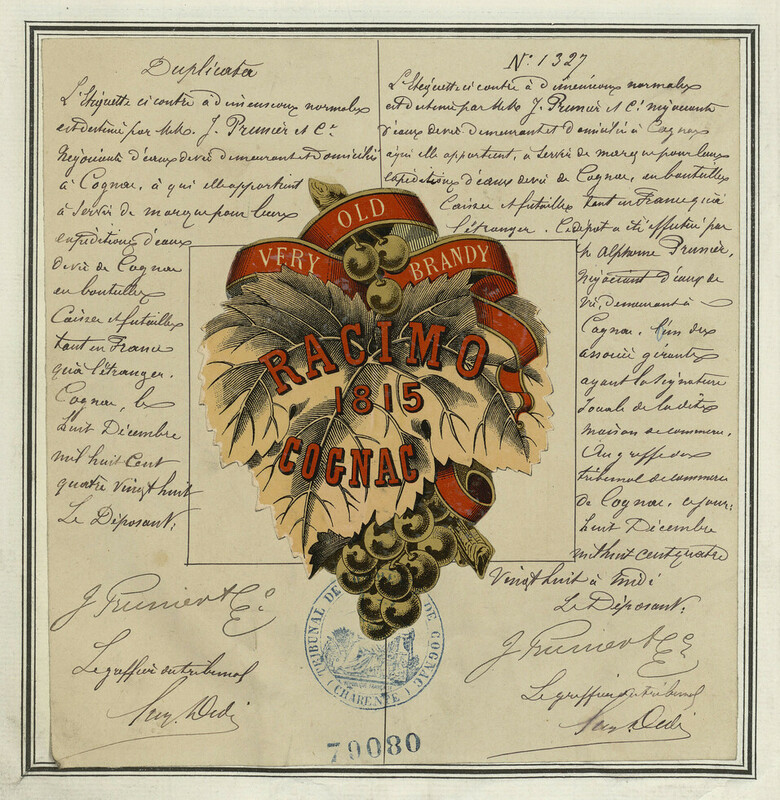 Duplicata
L'Etiquette ci contre à dimensions normales
est destiné par MM. J. Prunier et Cie
Négociants d'eaux de vie demeurant et domiciliés
à Cognac, à qui elle appartient
à servir de marque pour leurs
expéditions d'eaux
de vie de Cognac
en bouteilles
Caisses et futailles
tant en France
qu'à l'étranger.
Cognac, le
huit Décembre
mil huit Cent
quatre vingt huit
Le Déposant:
J. Prunier & Cie
Le greffier du tribunal
N° 1327
L'Etiquette ci contre à dimensions normales
est destiné par MM. J. Prunier et Cie négociants
d'eaux de vie demeurant et domiciliés à Cognac
à qui elle appartient, à servir de marque pour leurs
expéditions d'eaux de vie de Cognac, en bouteilles
Caisses et futailles tant en France qu'à
l'étranger. Ce dépot a été effectué par
Alphonse Prunier,
Négociant d'eaux de
vie, demeurant à
Cognac, l'un des
associés gérants
ayant la signature
sociale de la dite
maison de commerce.
Au greffe du
tribunal de commerce
de Cognac, ce jour:
huit Décembre
mil huit cent quatre
vingt huit à midi
Le Déposant:
J. Prunier & Cie
Le greffier du tribunal
VERY OLD BRANDY
RACIMO
1815
COGNAC
TRIBUNAL DE DE COGNAC
(CHARENTE)
79080